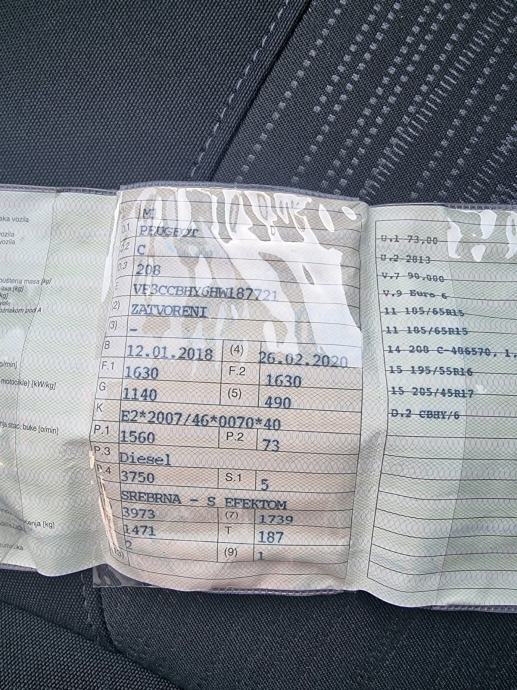 aka vozila
vozila
vozila
masa [kg]
[kg]
oznakom pod A
o/min]
motocikle) [kW/kg]
stac. buke [o/min]
[kg]
M
PEUGEOT
C
208
VF3CCBHY6HW187721
(2) ZATVORENI
(3) –
B 12.01.2018 (4) 26.02.2020
F.1 1630 F.2 1630
G 1140 (5) 490
K E2*2007/46*0070*40
P.1 1560 P.2 73
P.3 Diesel
P.4 3750 S.1 5
SREBRNA - S EFEKTOM
3973 (7) 1739
1471 T 187
2 (9) 1
U.1 73,00
U.2 2813
V.7 90.000
V.9 Euro 6
11 185/65R15
11 185/65R15
14 208 C-486570, 1.
15 195/55R16
15 205/45R17
D.2 CBHY/6